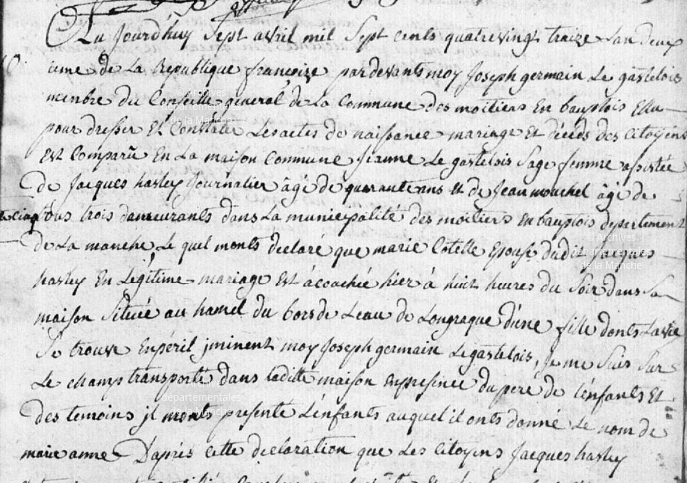 Aujourdhuy Sept avril mil Sept cents quatrevingt traize Lan deux
ieme de La Republique françoize pardevants moy Joseph germain Le gastelois
menbre du Conseille general de La Commune des moitiers En bauptois Elu
pour dresser Et Constater Les actes de naissance mariage Et décés des Citoyens
Est Comparu En La maison Commune jeanne Le gastelois Sage femme assistée
De Jacques hasley Journalier âgé de quarante ans Et de Jean mouchel âgé de
tous trois demeurants dans La municipalité des moitiers En bauptois departement
de La manche Le quel monts declaré que marie Cotelle Epouse dudit Jacques
hasley En Legitime mariage Est acouchée hier à huit heures du Soir dans Sa
maison Située au hamel du bors de Leau de Longraque dune fille donts La vie
Se trouve En peril jminent moy Joseph germain Le gastelois, je me Suis Sur
Le champ transporté dans laditte maison En presence du pere de L'enfants Et
des temoins jl monts presenté L'enfants auquel il onts donné Le nom de
marie anne D'apres Cette declaration que Les Citoyens Jacques hasley
archives
la Manche
départementales